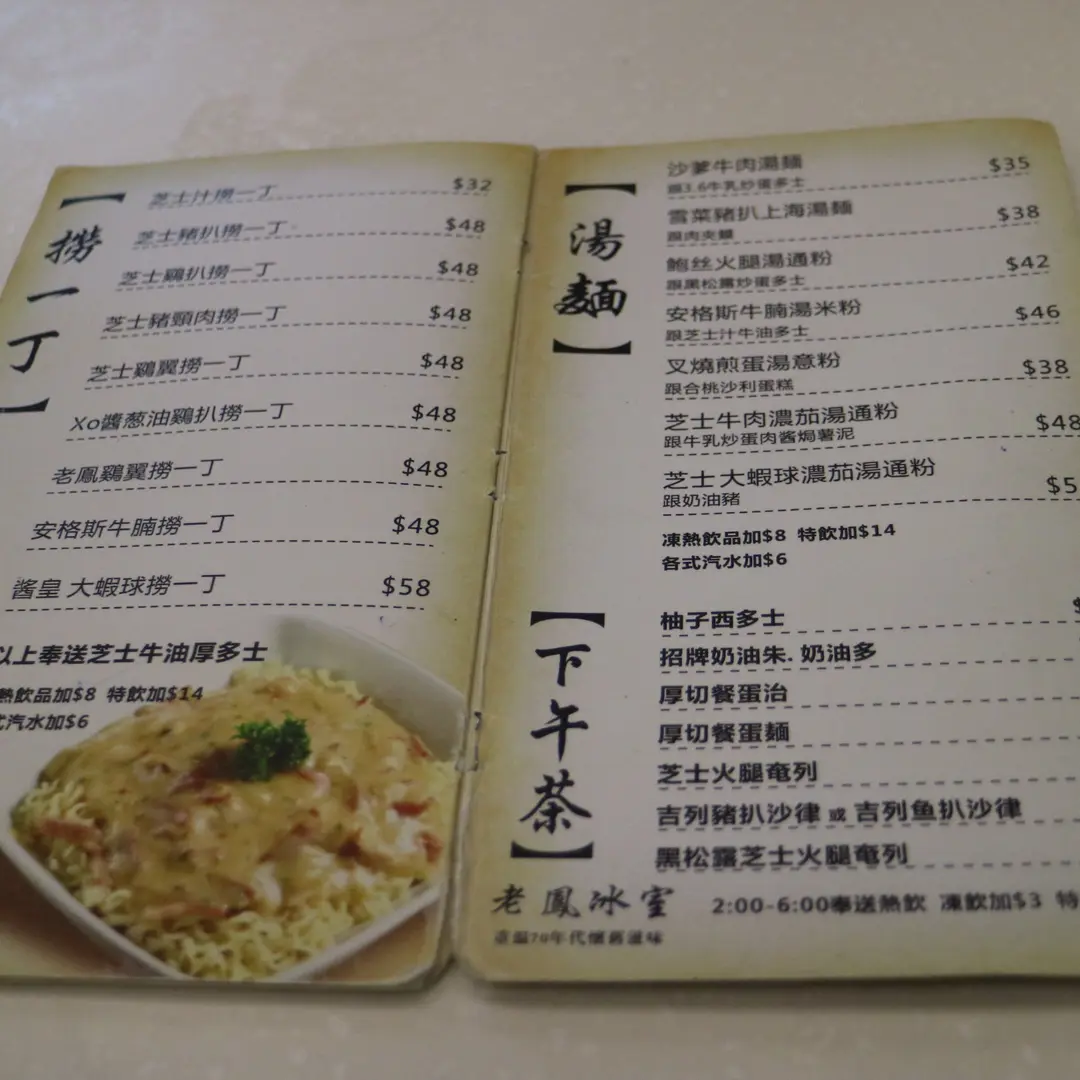 【撈一丁】
芝士汁撈一丁 $32
芝士豬扒撈一丁 $48
芝士鷄扒撈一丁 $48
芝士豬頸肉撈一丁 $48
芝士鷄翼撈一丁 $48
Xo醬葱油鷄扒撈一丁 $48
老鳳鷄翼撈一丁 $48
安格斯牛腩撈一丁 $48
醬皇 大蝦球撈一丁 $58
以上奉送芝士牛油厚多士
熱飲品加$8 特飲加$14
式汽水加$6
【湯麵】
沙爹牛肉湯麵 $35
跟3.6牛乳炒蛋多士
雪菜豬扒上海湯麵 $38
跟肉夾饃
鮑丝火腿湯通粉 $42
跟黑松露炒蛋多士
安格斯牛腩湯米粉 $46
跟芝士汁牛油多士
叉燒煎蛋湯意粉 $38
跟合桃沙利蛋糕
芝士牛肉濃茄湯通粉 $48
跟牛乳炒蛋肉酱焗薯泥
芝士大蝦球濃茄湯通粉 $5
跟奶油豬
凍熱飲品加$8 特飲加$14
各式汽水加$6
【下午茶】
柚子西多士 $
招牌奶油朱. 奶油多
厚切餐蛋治
厚切餐蛋麵
芝士火腿奄列
吉列豬扒沙律 或 吉列鱼扒沙律
黑松露芝士火腿奄列
老鳳冰室 2:00-6:00奉送熱飲 凍飲加$3 特
重温70年代懷舊滋味